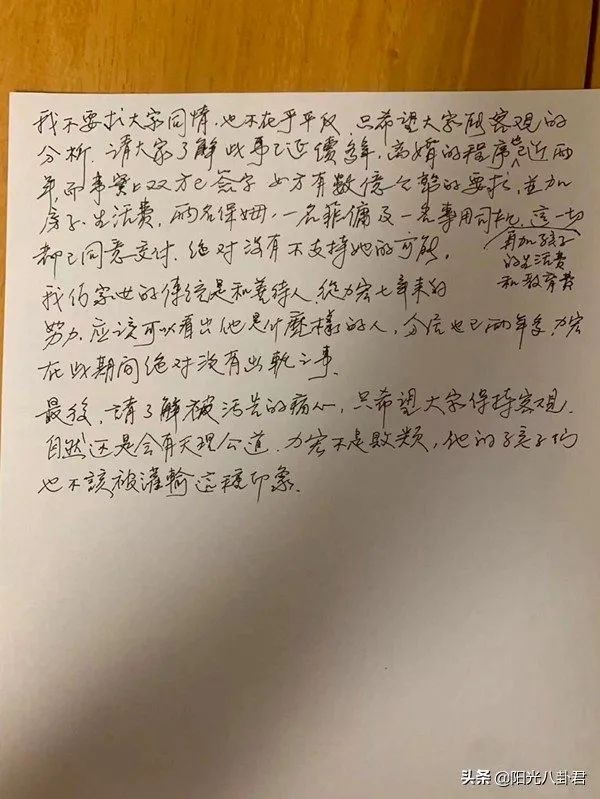 我不要求大家同情,也不在乎平反,只希望大家能客觀的
分析,請大家了解此事已延續多年,离婚的程序也近兩
年,而事實上双方已签字 女方有数億金額的要求,並加
房子、生活費、兩名保姆,一名菲傭及一名專用司机,這一切
再加孩子
的生活费
和教育费
都已同意交付,绝对没有不支持她的可能。
我们家世的傳統是和善待人 從力宏七年来的
努力,应該可以看出他是什麼樣的人,分居也已兩年多,力宏
在此期间绝对没有出軌之事。
最後,請了解被污告的痛心,只希望大家保持客观,
自然还是会有天理公道,力宏不是败類,他的孩子们
也不該被灌輸這種印象。
头条 @阳光八卦君